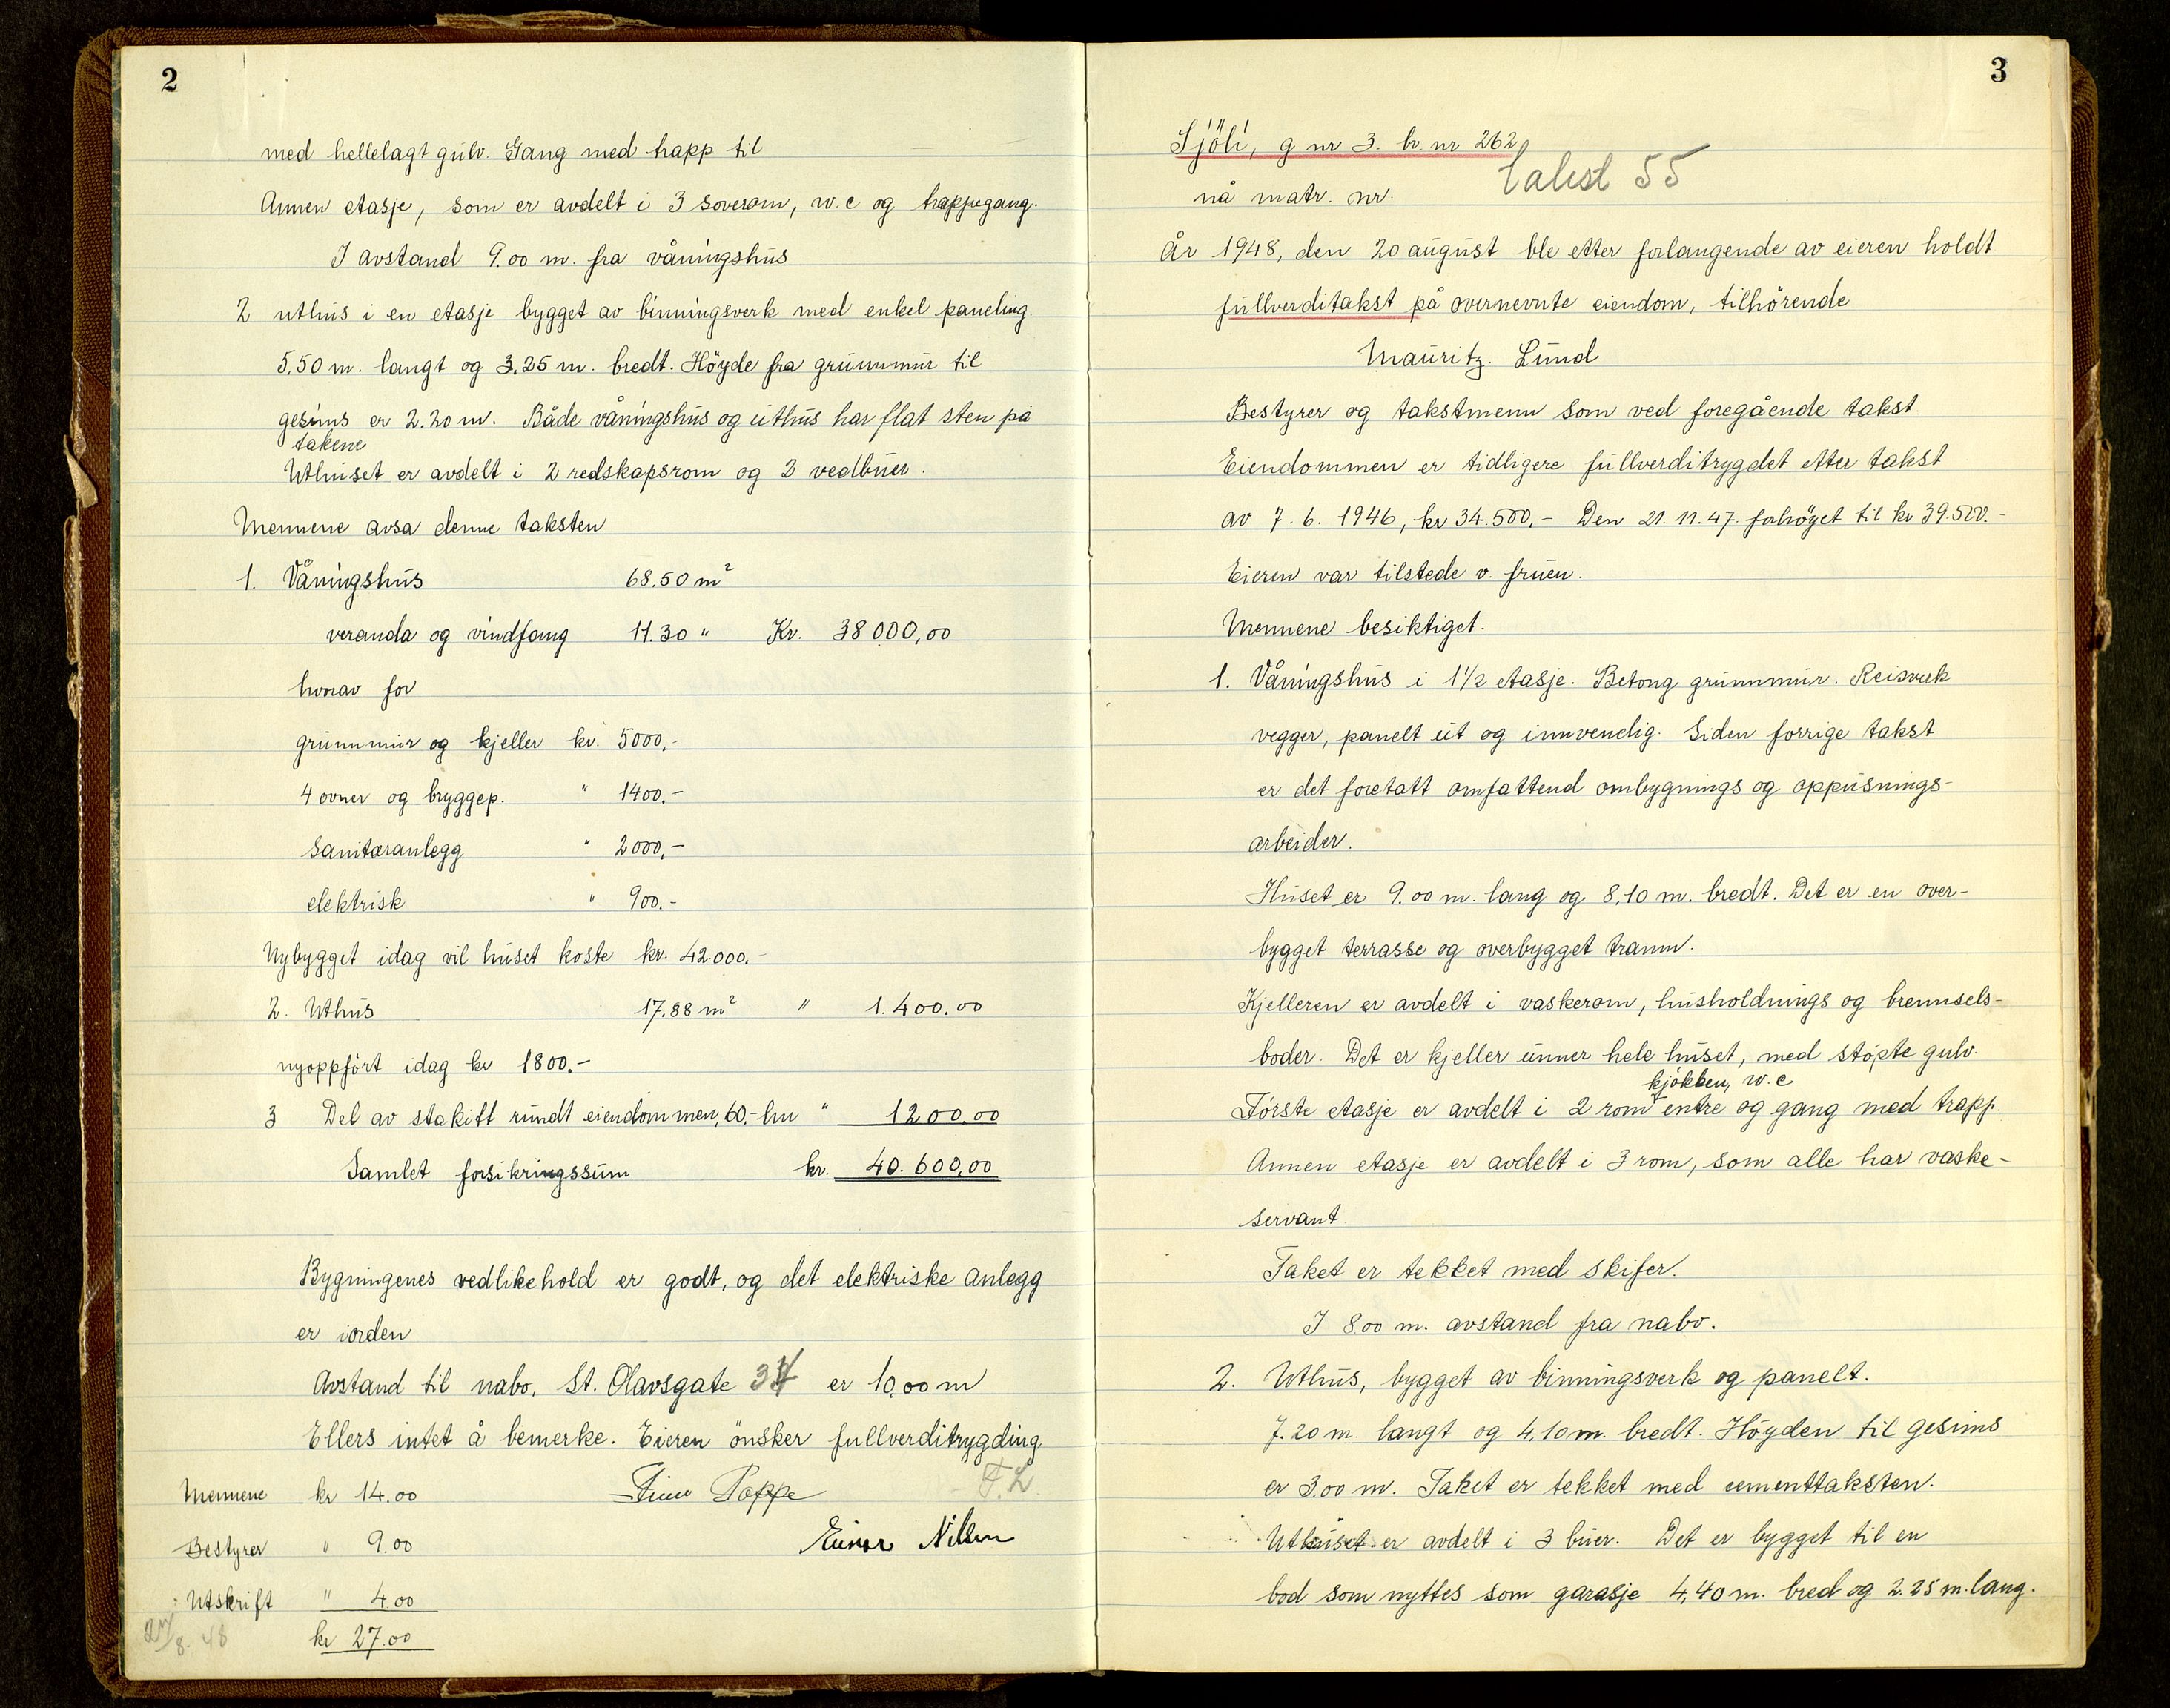 2
med hellelagt gulv. Gang med trapp til
Annen etasje, som er avdelt i 3 soverom, w.c og trappegang.
I avstand 9.00 m. fra våningshus
2 uthus i en etasje bygget av binningsverk med enkel paneling
5,50 m. langt og 3.25 m. bredt. Höyde fra grunnmur til
gesims er 2.20 m. Både våningshus og uthus har flat sten på
takene
Uthuset er avdelt i 2 redskapsrom og 2 vedbuer.
Mennene avsa denne taksten
1. Våningshus 68.50 m²
veranda og vindfang 11.30 " Kr. 38.000,00
hvorav for
grunnmur og kjeller kr. 5000,-
4 ovner og bryggep. " 1400.-
Sanitæranlegg " 2000,-
elektrisk " 900.-
Nybygget idag vil huset koste kr. 42.000.-
2. Uthus 17.88 m² " 1.400.00
nyoppfört idag kr 1800.-
3 Del av stakitt rundt eiendommen, 60,- lm " 1200.00
Samlet forsikringssum kr. 40.600,00
Bygningenes vedlikehold er godt, og det elektriske anlegg
er iorden
Avstand til nabo, St. Olavsgate 34 er 10,00 m
Ellers intet å bemerke. Eieren önsker fullverditrygding
F.L.
Mennene kr 14.00 Finn Poppe
Bestyrer " 9.00 Einar Nilsen
Utskrift " 4.00
27/8. 48 kr 27.00
3
Sjöli, g nr 3. br. nr 262
nå matr. nr. takst 55
År 1948, den 20 august ble etter forlangende av eieren holdt
fullverditakst på overnevnte eiendom, tilhörende
Mauritz. Lund
Bestyrer og takstmenn som ved foregående takst.
Eiendommen er tidligere fullverditrygdet etter takst
av 7. 6. 1946, kr 34.500,- Den 21. 11. 47. forhöyet til kr 39.500.-
Eieren var tilstede v. fruen.
Mennene besiktiget.
1. Våningshus i 1 1/2 etasje. Betong grunnmur. Reisverk
vegger, panelt ut og innvendig. Siden forrige takst
er det foretatt omfattend ombygnings og oppusnings-
arbeider.
Huset er 9.00 m. lang og 8,10 m. bredt. Det er en over-
bygget terrasse og overbygget tramm.
Kjelleren er avdelt i vaskerom, husholdnings og brennsels-
boder. Det er kjeller unner hele huset, med stöpte gulv.
kjökken, w.c
Förste etasje er avdelt i 2 rom entre og gang med trapp.
Annen etasje er avdelt i 3 rom, som alle har vaske-
servant.
Taket er tekket med skifer.
I 8.00 m. avstand fra nabo.
2. Uthus, bygget av binningsverk og panelt.
7.20 m. langt og 4.10 m. bredt. Höyden til gesims
er 3.00 m. Taket er tekket med cementtaksten.
Uthuset er avdelt i 3 buer. Det er bygget til en
bod som nyttes som garasje 4,40 m. bred og 2.25 m. lang.